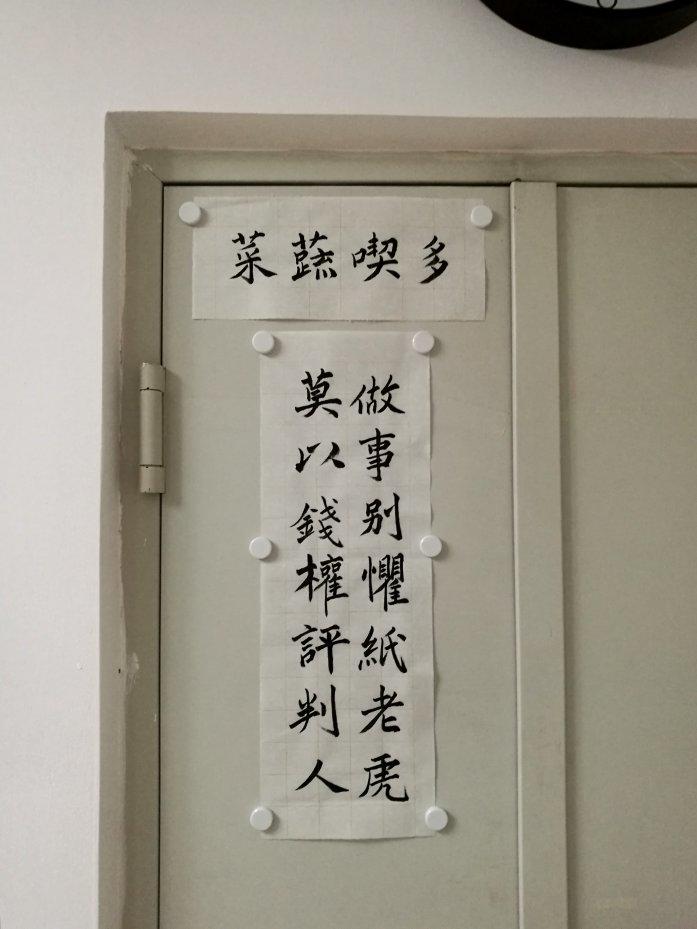 多喫蔬菜
做事别懼紙老虎
莫以錢權評判人